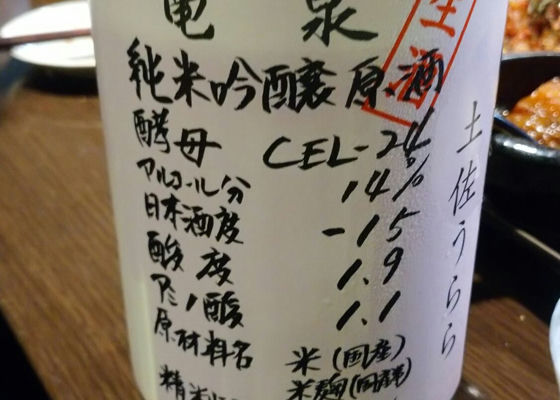 亀泉
生酒
純米吟醸原酒
酵母 CEL-24
アルコール分 14%
日本酒度 -15
酸度 1.9
アミノ酸 1.1
原材料名 米(国産)
米麹(国産)
土佐うらら